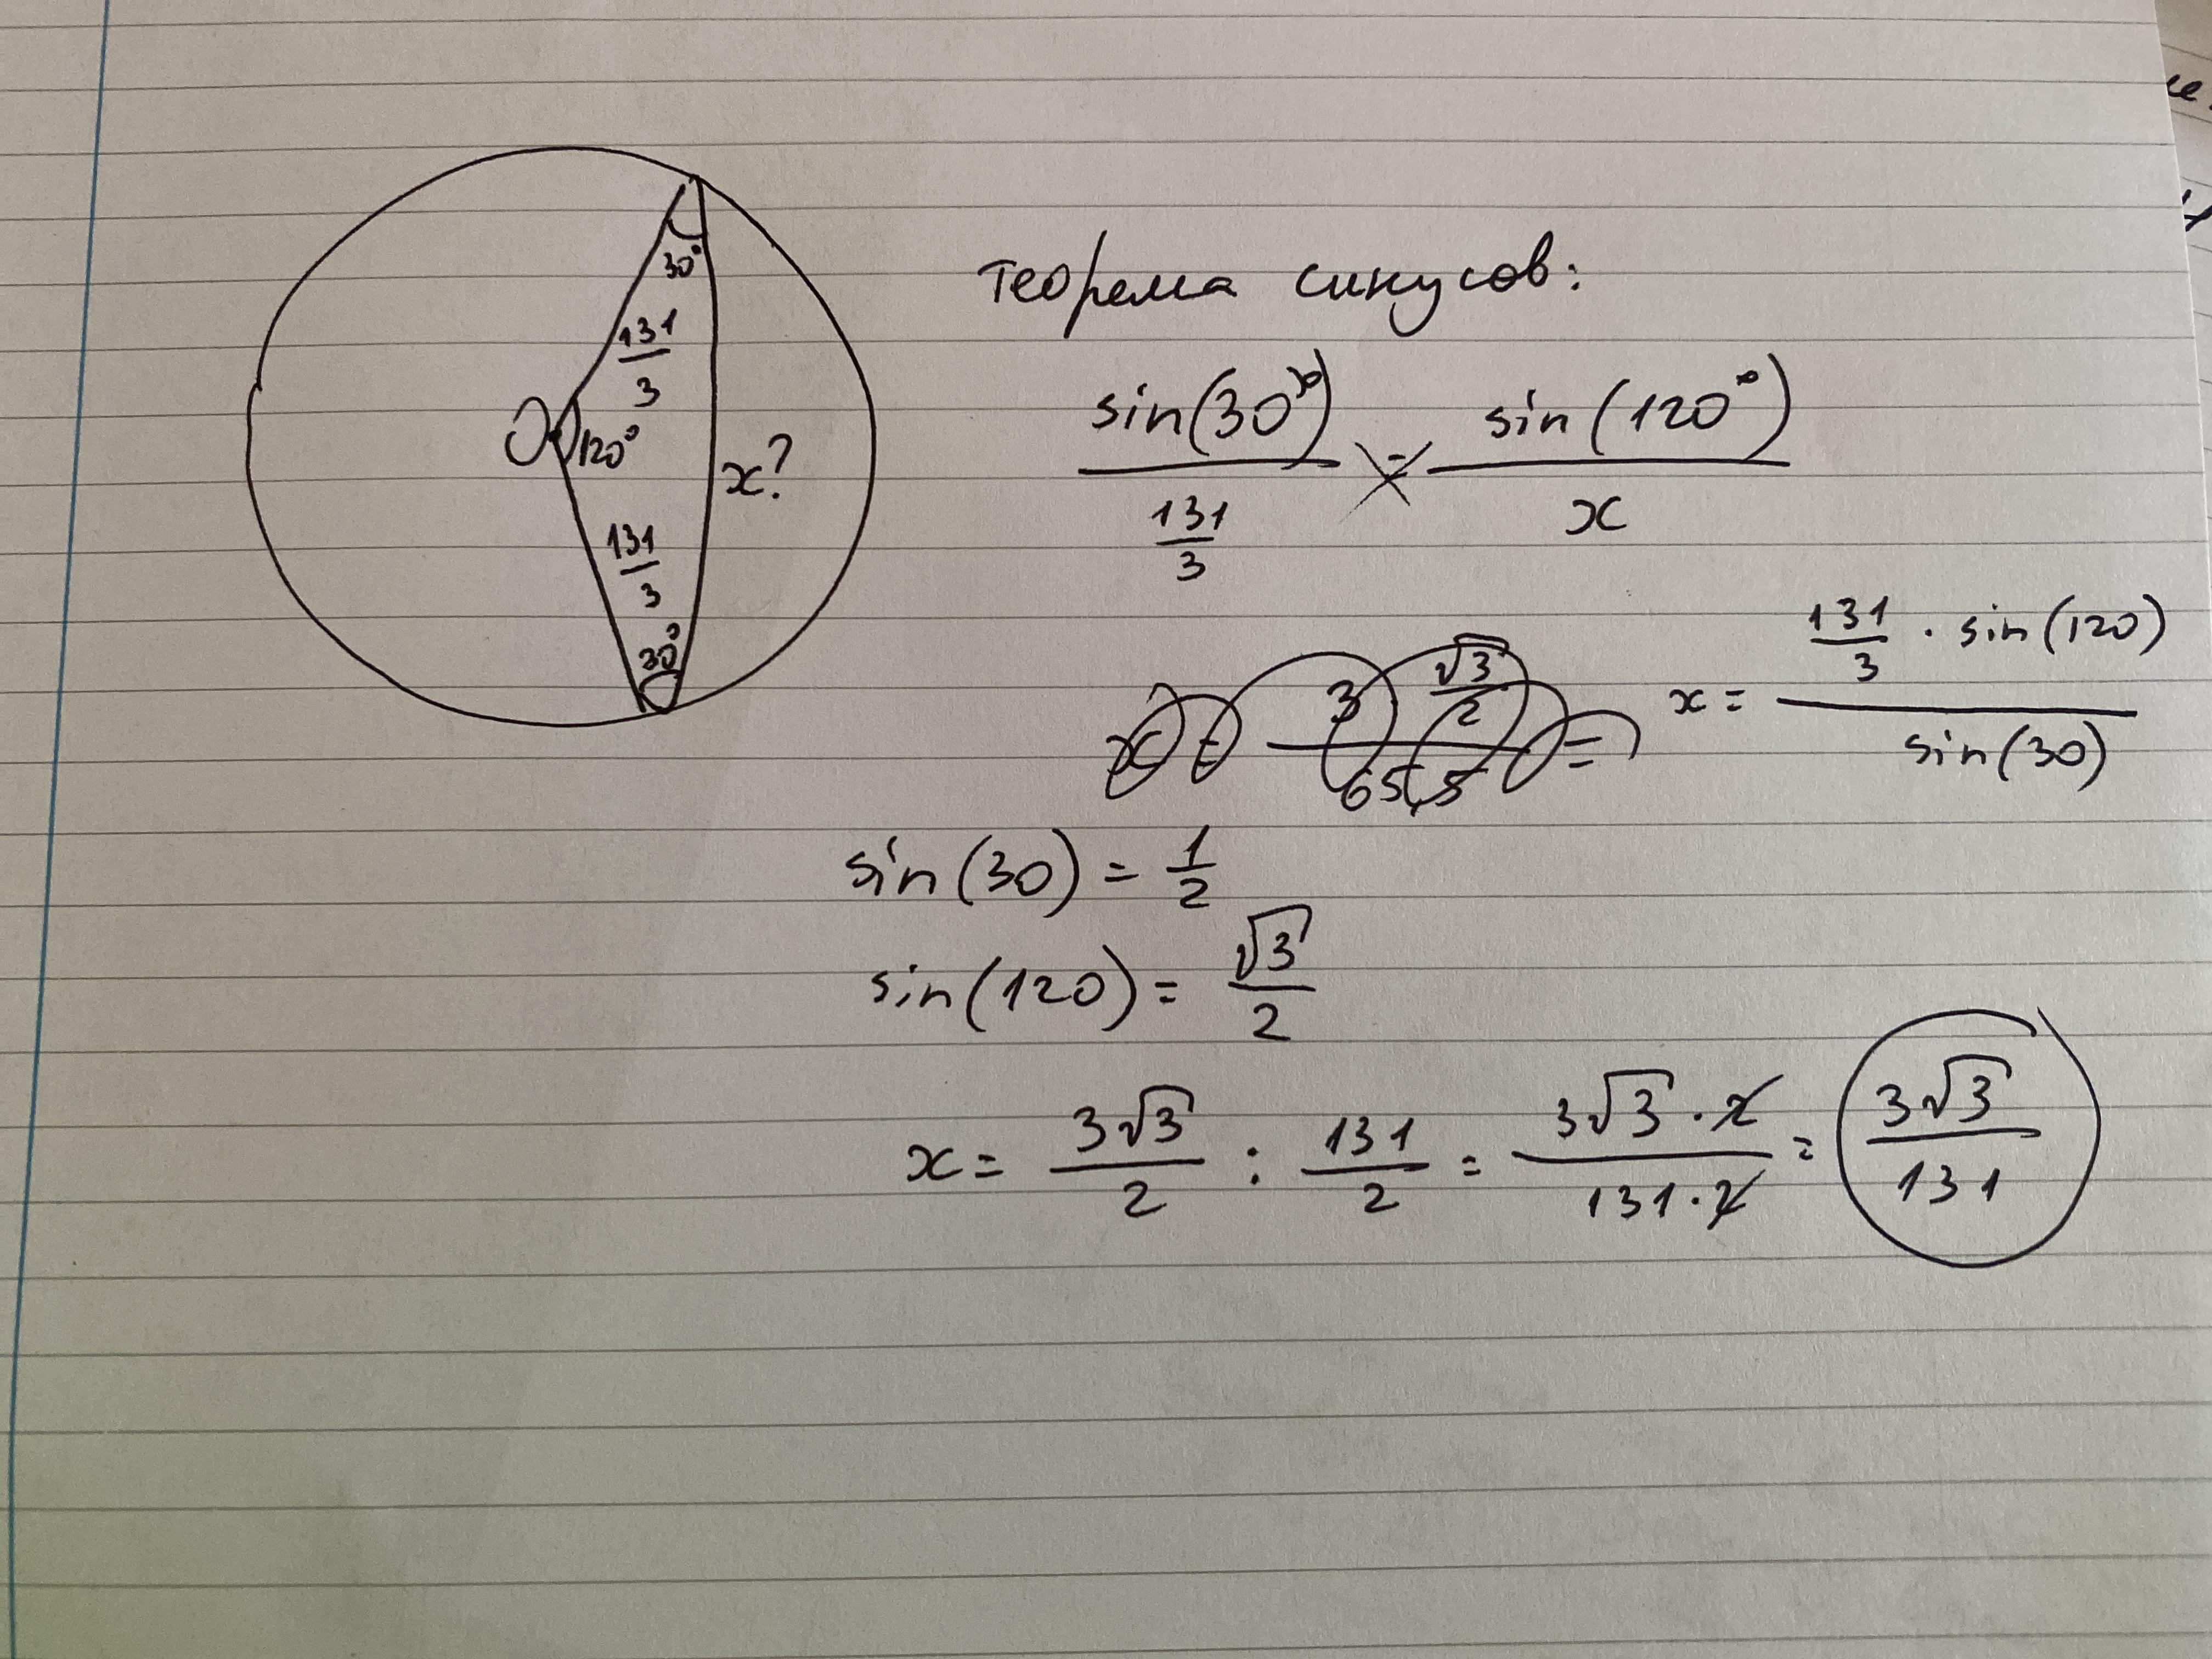 30°
131/3
O 120°
x?
131/3
30°
теорема синусов:
sin(30°)/(131/3) = sin(120°)/x
x = (131/3 · sin(120))/sin(30)
sin(30) = 1/2
sin(120) = √3/2
x = 3√3/2 : 131/2 = 3√3·2/131·2 = 3√3/131